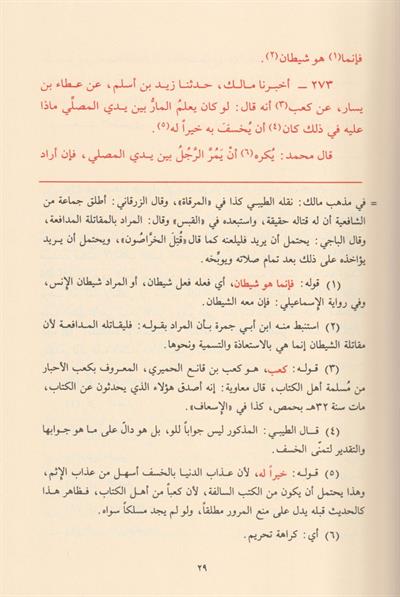 فإنما(١) هو شيطان(٢).
٢٧٣ ــ أخبرنا مالـك، حدثنـا زيـد بن أسلم، عن عطـاء بن
يسار، عن كعب(٣) أنه قال: لو كان يعلمُ المارُّ بين يدي المصلِّي ماذا
عليه في ذلك كان(٤) أن يُخسفَ به خيراً له(٥).
قال محمد: يُكره(٦) أنْ يَمُرَّ الرَّجُلُ بين يدي المصلي، فإن أراد
= في مذهب مالك: نقله الطيبي كذا في «المرقاة»، وقال الزرقاني: أطلق جماعة من
الشافعية أن له قتاله حقيقة، واستبعده في «القبس» وقال: المراد بالمقاتلة المدافعة،
وقال الباجي: يحتمل أن يريد فليلعنه كما قال «قُتِلَ الخرَّاصون»، ويحتمل أن يريد
يؤاخذه على ذلك بعد تمام صلاته ويوبِّخه.
(١) قوله: فإنما هو شيطان، أي فعله فعل شيطان، أو المراد شيطان الإِنس،
وفي رواية الإِسماعيلي: فإن معه الشيطان.
(٢) استنبط منه ابن أبي جمرة بأن المراد بقولـه: فليقاتله المدافعة لأن
مقاتلة الشيطان إنما هي بالاستعاذة والتسمية ونحوها.
(٣) قولـه: كعب، هو كعب بن قانـع الحميري، المعروف بكعب الأحبار
من مُسلمة أهل الكتاب، قال معاوية: إنه أصدق هؤلاء الذي يحدثون عن الكتاب،
مات سنة ٣٢هـ بحمص، كذا في «الإِسعاف».
(٤) قـال الطيبي: المذكور ليس جواباً للو، بل هو دالّ على ما هو جوابها
والتقدير لتمنَّى الخسف.
(٥) قولـه: خيراً له، لأن عذاب الدنيا بالخسف أسهل من عذاب الإِثم،
وهذا يحتمل أن يكون من الكتب السالفة، لأن كعباً من أهل الكتاب، فظاهر هـذا
كالحديث قبله يدل على منع المرور مطلقاً، ولو لم يجد مسلكاً سواه.
(٦) أي: كراهة تحريم.
٢٩